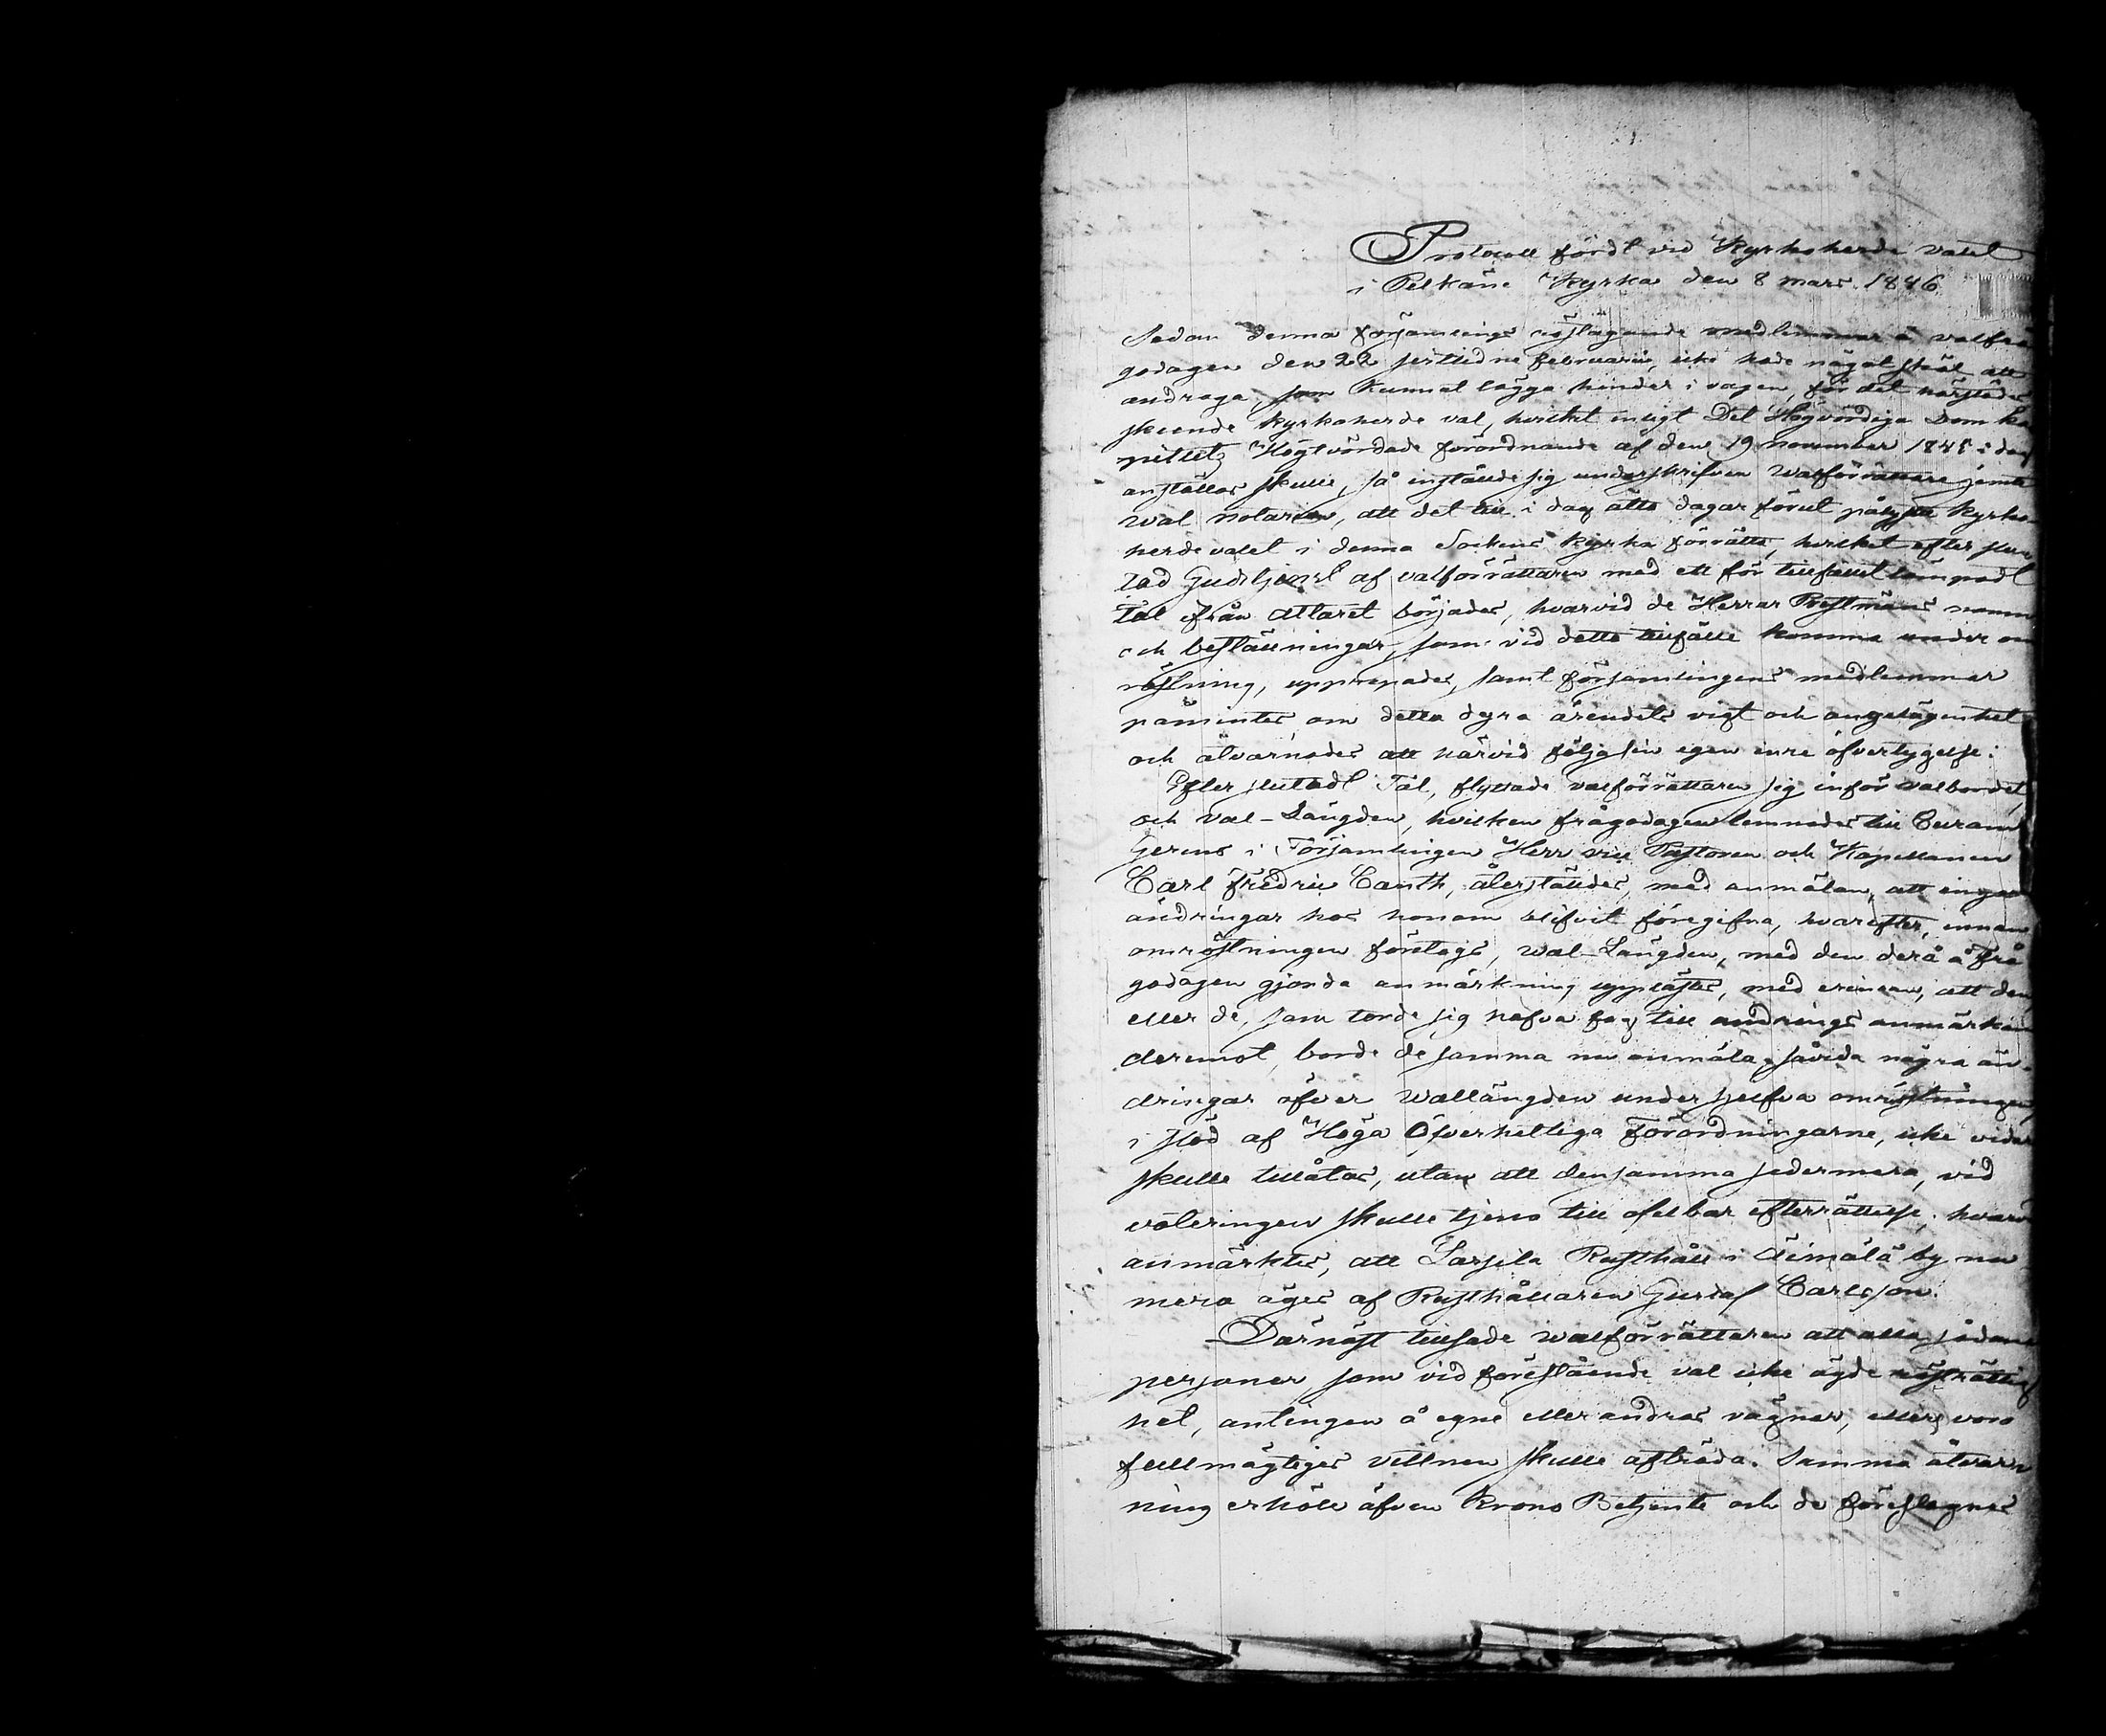 Protocoll fördt vid Kyrkoherde valet
i Pelkäne Kyrka den 8 mars 1846.
Sedan denna församlings röstägande medlemmar å valfrå
godagen den 22 sistlidne februarii, icke hade något skäl att
andraga, som kunnat lägga hinder i vägen, för det härstädes
skeende kyrkoherde val, hvilket enligt Det Högvördiga Domka
pitlets Högtvördade förordnande af den 19 november 1845 i dag
anställas skulle, så inställde sig underskrifven Walförrättare jemte
Wal notarien, att det till i dag åtta dagar förut pålysta kyrko-
herde valet i denna Sockens Kyrka förrätta, hvilket efter slu
tad Gudstjenst af valförrättaren med ett för tillfället lämpadt
Tal ifrån altaret börjades, hvarvid de Herrar Prestmäns namn
och beställningar, som vid detta tillfälle komma under om
röstning, upprepades, samt församlingens medlemmar
påmintes om detta dyra ärendets vigt och angelägenhet
och alvarnades att härvid följa sin egen inre öfvertygelse:
Efter slutadt Tal, flyttade valförrättaren sig inför valbordet,
och Val-Längden, hvilken frågodagen lemnades till Curam
Gerens i Församlingen Herr vice Pastoren och Kapellanen
Carl Fredric Canth, återställdes, med anmälan, att inga
ändringar hos honom blifvit föregifna, hvarefter, innan
omröstningen företogs, Wal-Längden, med den derå å Frå
godagen gjorda anmärkning upplästes, med erinran, att den
eller de, som torde sig hafva fog till andrings anmärkning
deremot, borde desamma nu anmäla, såvida några än-
dringar öfver Wallängden under sjelfva omröstningen,
i stöd af Höga Öfverhetliga Förordningarne, icke vidare
skulle tillåtas, utan att densamma sedermera, vid
voteringen skulle tjena till ofelbar efterrättelse, hvarvid
anmärktes, att Sarsila Rusthåll i Äimälä by nu
mera äges af Rusthållaren Gustaf Carlsson.
Därnäst tillsade walförrättaren att alla sådane
personer som vid förestående val icke ägde rösträttig
het, antingen å egne eller andras vägnar, eller voro
fullmägtiges vittnen skulle afträda. Samma åtvar
ning erhöll äfven Krono Betjente och de föreslagnes